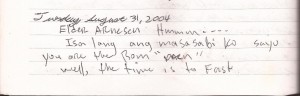 Tuesday August 31, 2004
Elder Arnesen Hmmm....
Isa lang ang masasabi ko sayo.
you are the Bom "
well, the time is to Fast